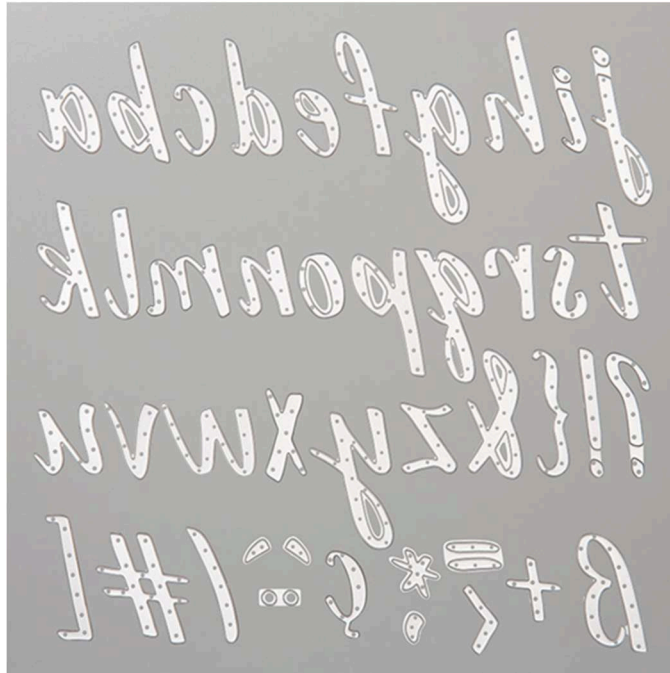 a b c d e f g h i j
k l m n o p q r s t
u v w x y z & { ! ?
[ # ( ´ ` ¨ ç * , = + ß